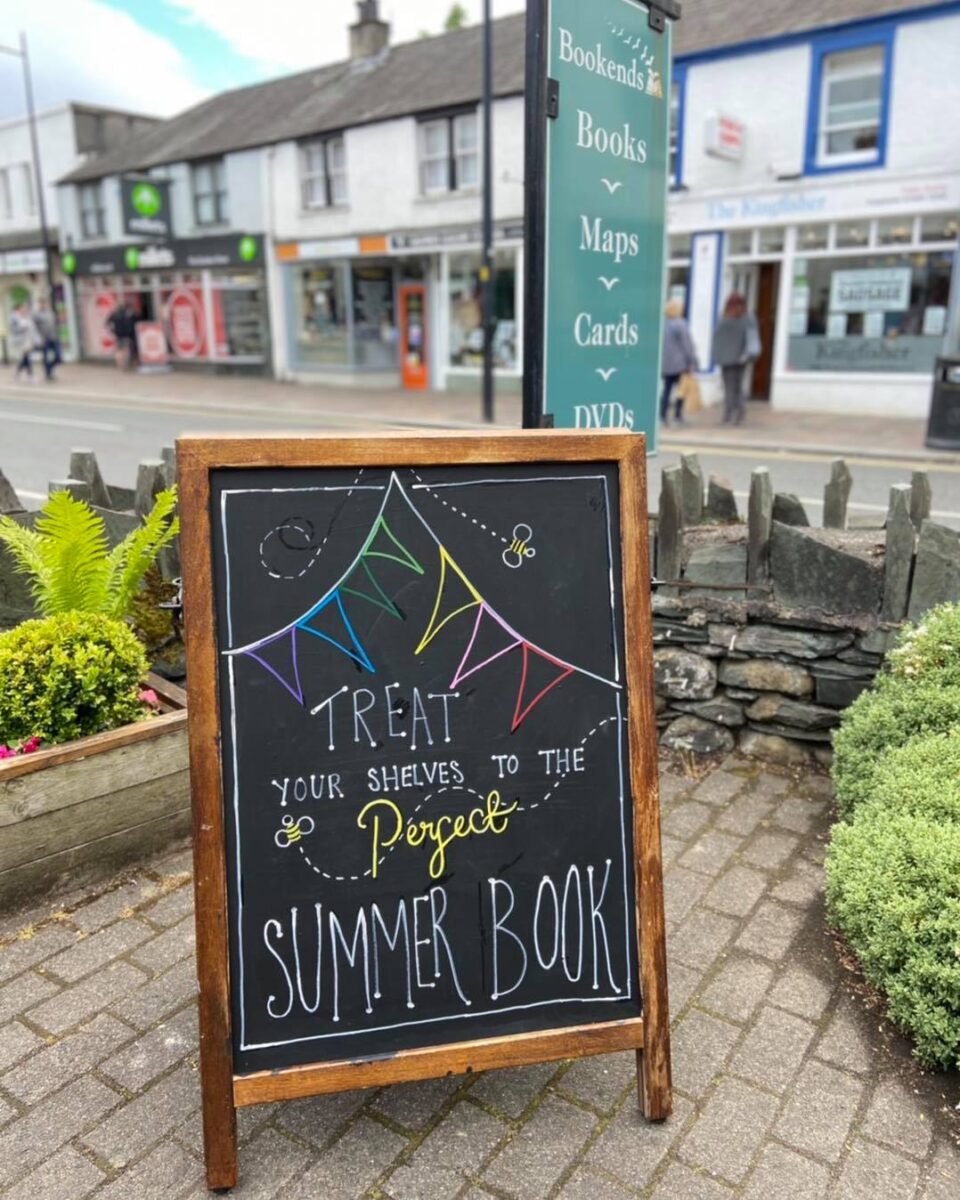 Bookends
Books
Maps
Cards
DVDs
The Kingfisher
SAUSAGE
Kingfisher
TREAT
YOUR SHELVES TO THE
Perfect
SUMMER BOOK